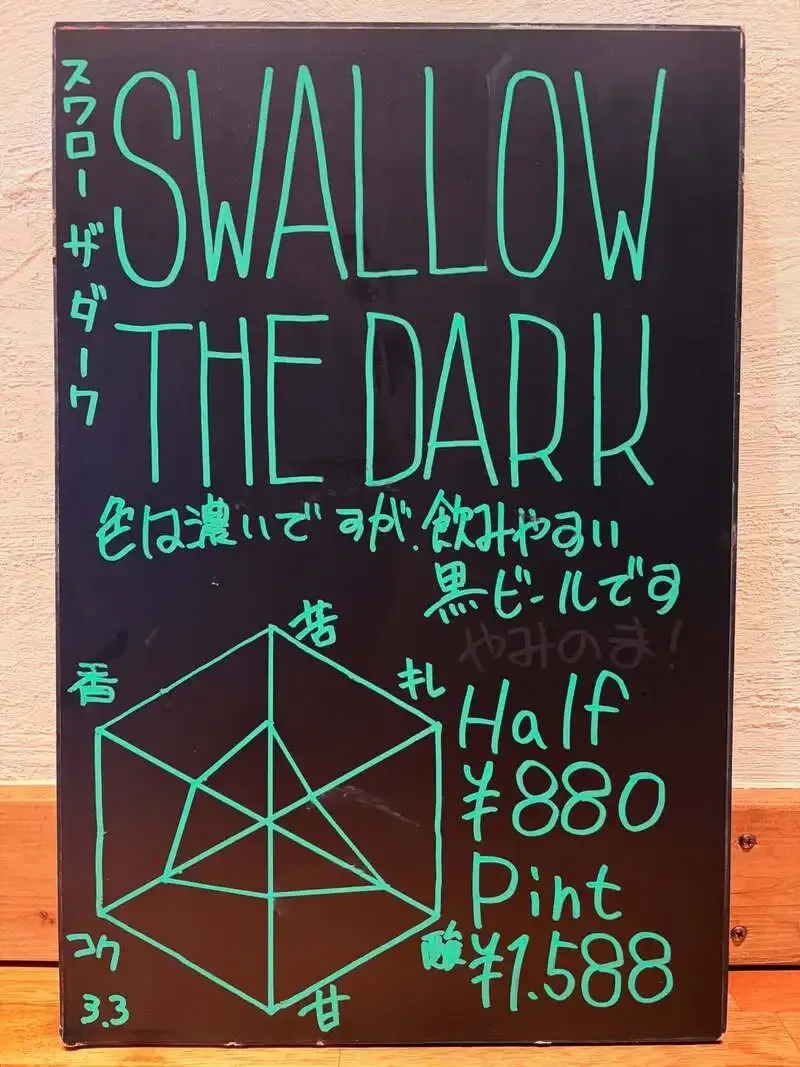 スワローザダーク
SWALLOW
THE DARK
色は濃いですが、飲みやすい
黒ビールです
やみのま！
苦
香
キレ
コク
酸
甘
3.3
Half
¥880
Pint
¥1.588